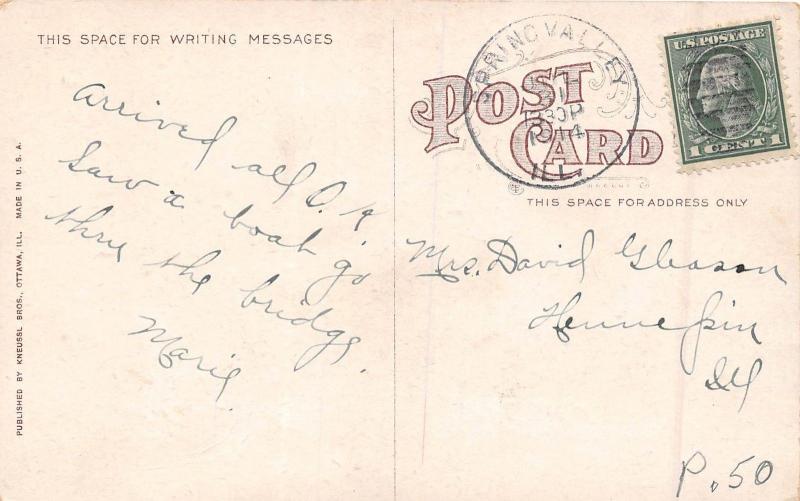 THIS SPACE FOR WRITING MESSAGES
arrived all O.K.
Saw a boat go
thru the bridge.
Marie.
PUBLISHED BY KNEUSSL BROS., OTTAWA, ILL. MADE IN U.S.A.
POST
CARD
SPRING VALLEY
30P
1914
ILL.
U.S. POSTAGE
1 CENT 1
THIS SPACE FOR ADDRESS ONLY
Mrs. David Gleason
Hennepin
Ill
P. 50